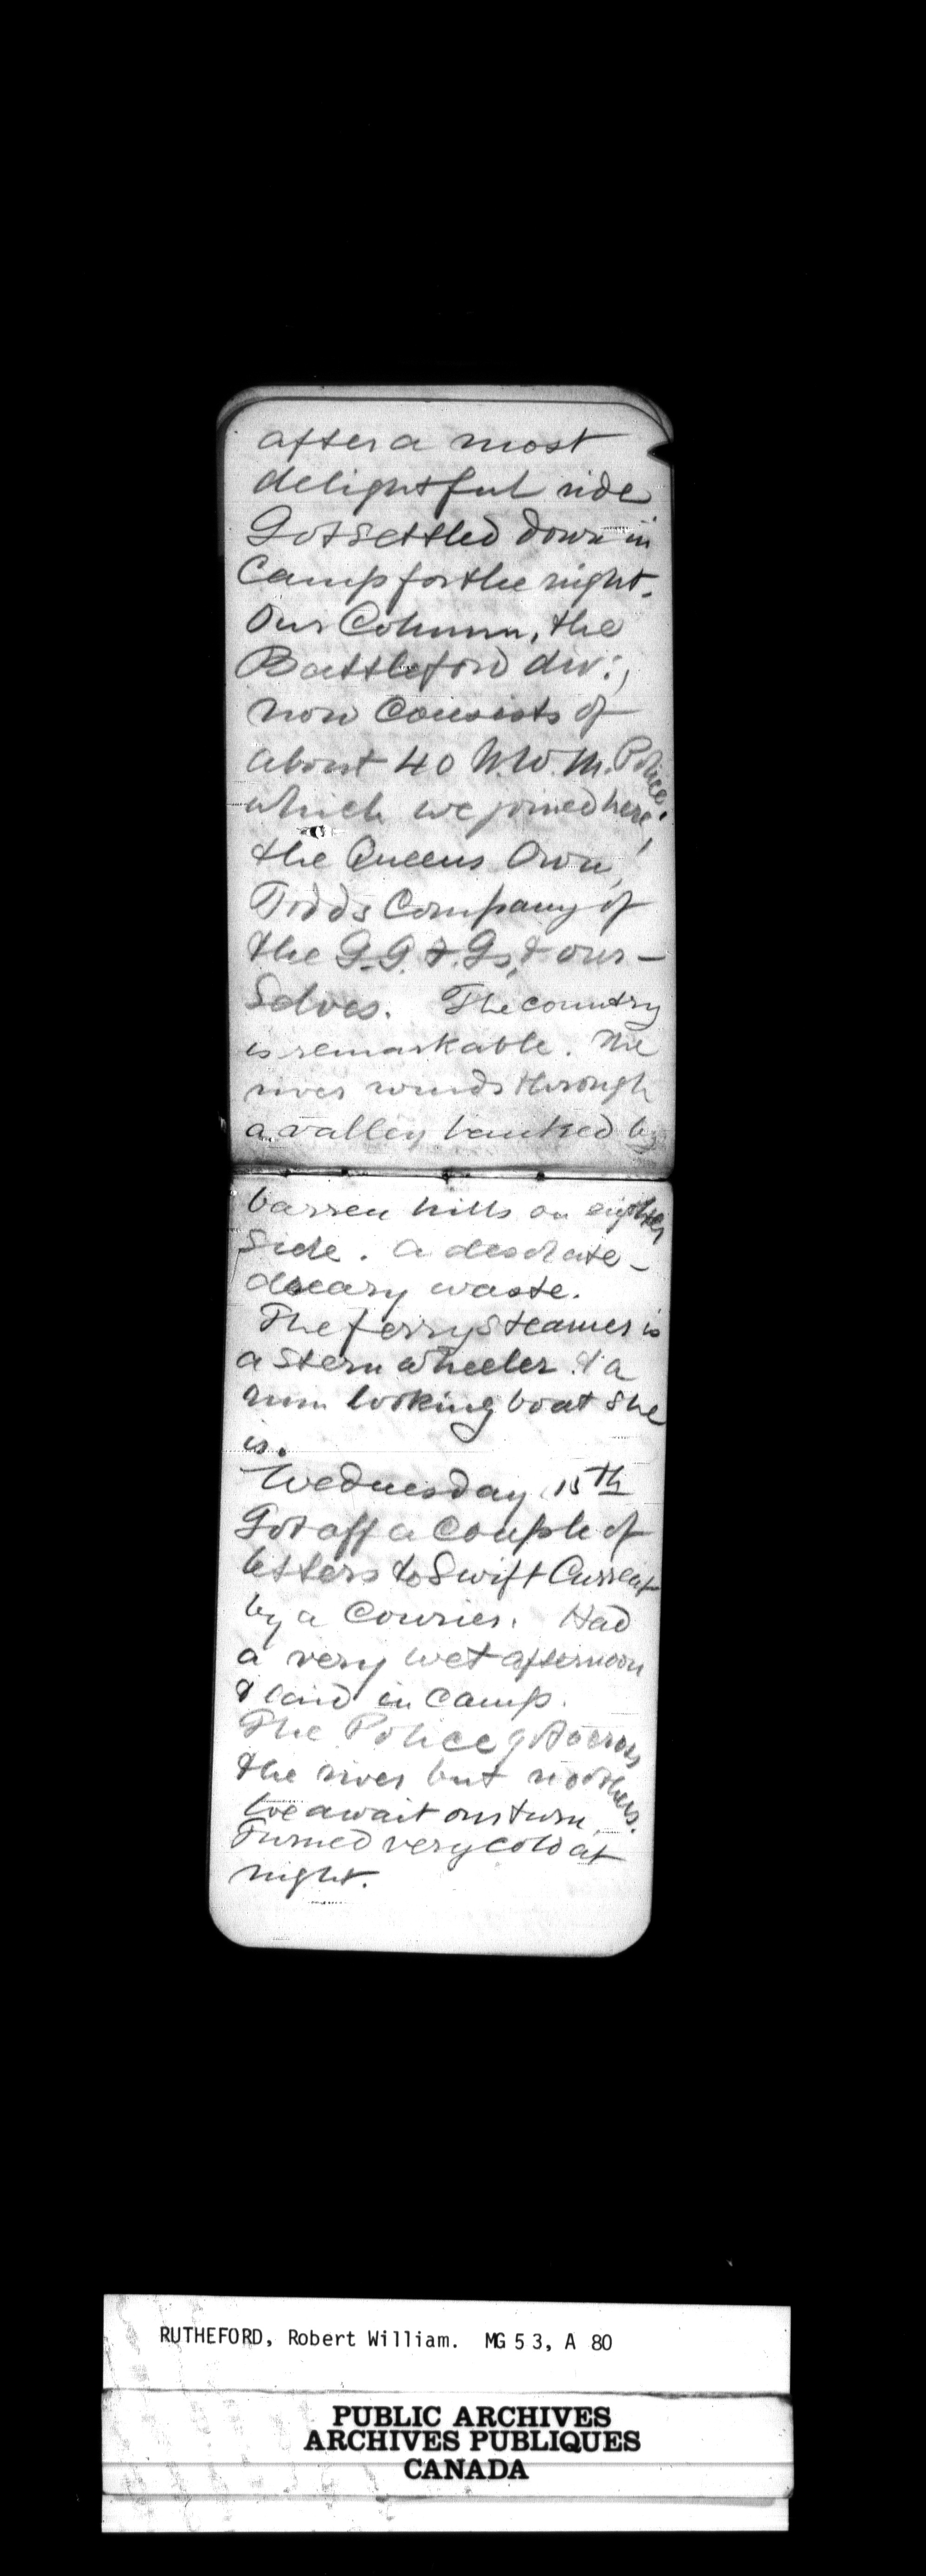 after a most
delightful ride
Got settled down in
Camp for the night.
Our Column, the
Battleford div:,
now Consists of
about 40 N.W.M. Police.
which we joined here,
the Queens Own,
Todds Company of
the G.G.F.Gs, & our-
Selves. The country
is remarkable. The
river winds through
a valley banked by
barren hills on eigther
Side. a desolate -
dreary waste.
The ferry Steamer is
a Stern wheeler. & a
rum looking boat she
is.
Wednesday 15th
Got off a Couple of
letters to Swift Current
by a Courier. Had
a very wet afternoon
& laid in Camp.
The Police got across
the river but no others.
We await our turn.
Turned very cold at
night.
RUTHEFORD, Robert William. MG 53, A 80
PUBLIC ARCHIVES
ARCHIVES PUBLIQUES
CANADA